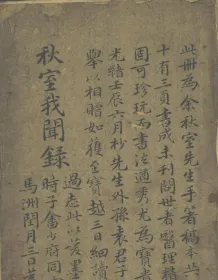 此冊為余秋室先生手著稿本共
十有三頁書成未刊閱世者
固可珍玩而書法遒秀尤為寶貴
光緒壬辰六月杪先生外孫袁君子
舉以相贈如獲至寶越三日細讀
過志此以
時子
馬洲閏月三日
秋室我聞錄